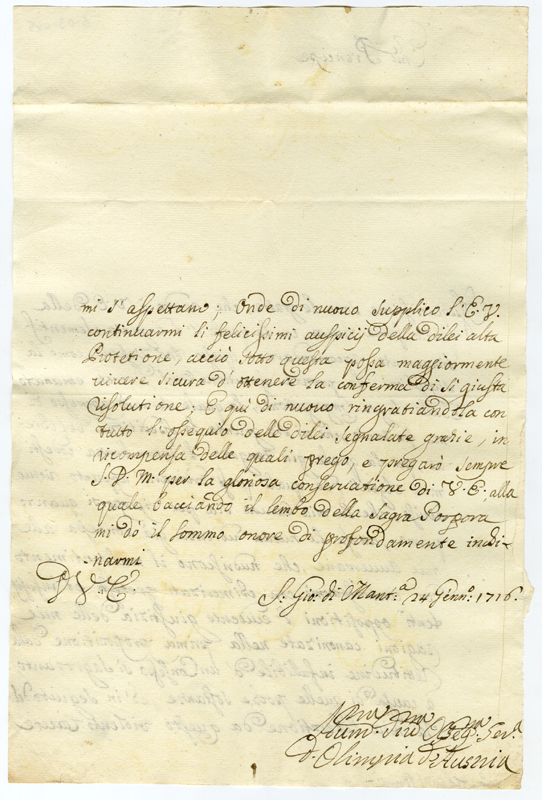 mi s'aspettano; Onde di nuovo supplico l'E.V.
continuarmi li felicissimi auspicij della dilei alta
Protetione, acciò sotto questa possa maggiormente
vivere sicura d'ottenere la conferma di si giusta
risolutione; E quì di nuovo ringratiandola con
tutto l'ossequio delle dilei segnalate grazie, in
ricompensa delle quali prego, e pregarò sempre
S.D.M. per la gloriosa conservatione di V.E. alla
quale bacciando il lembo della Sagra Porpora
mi dò il sommo onore di profondamente incli-
narmi
D V E.
S. Gio: di Mant:a 24 Genn:o 1716.
Hum:ma Div:ma Obblig:ma Ser:a
d. Olimpia